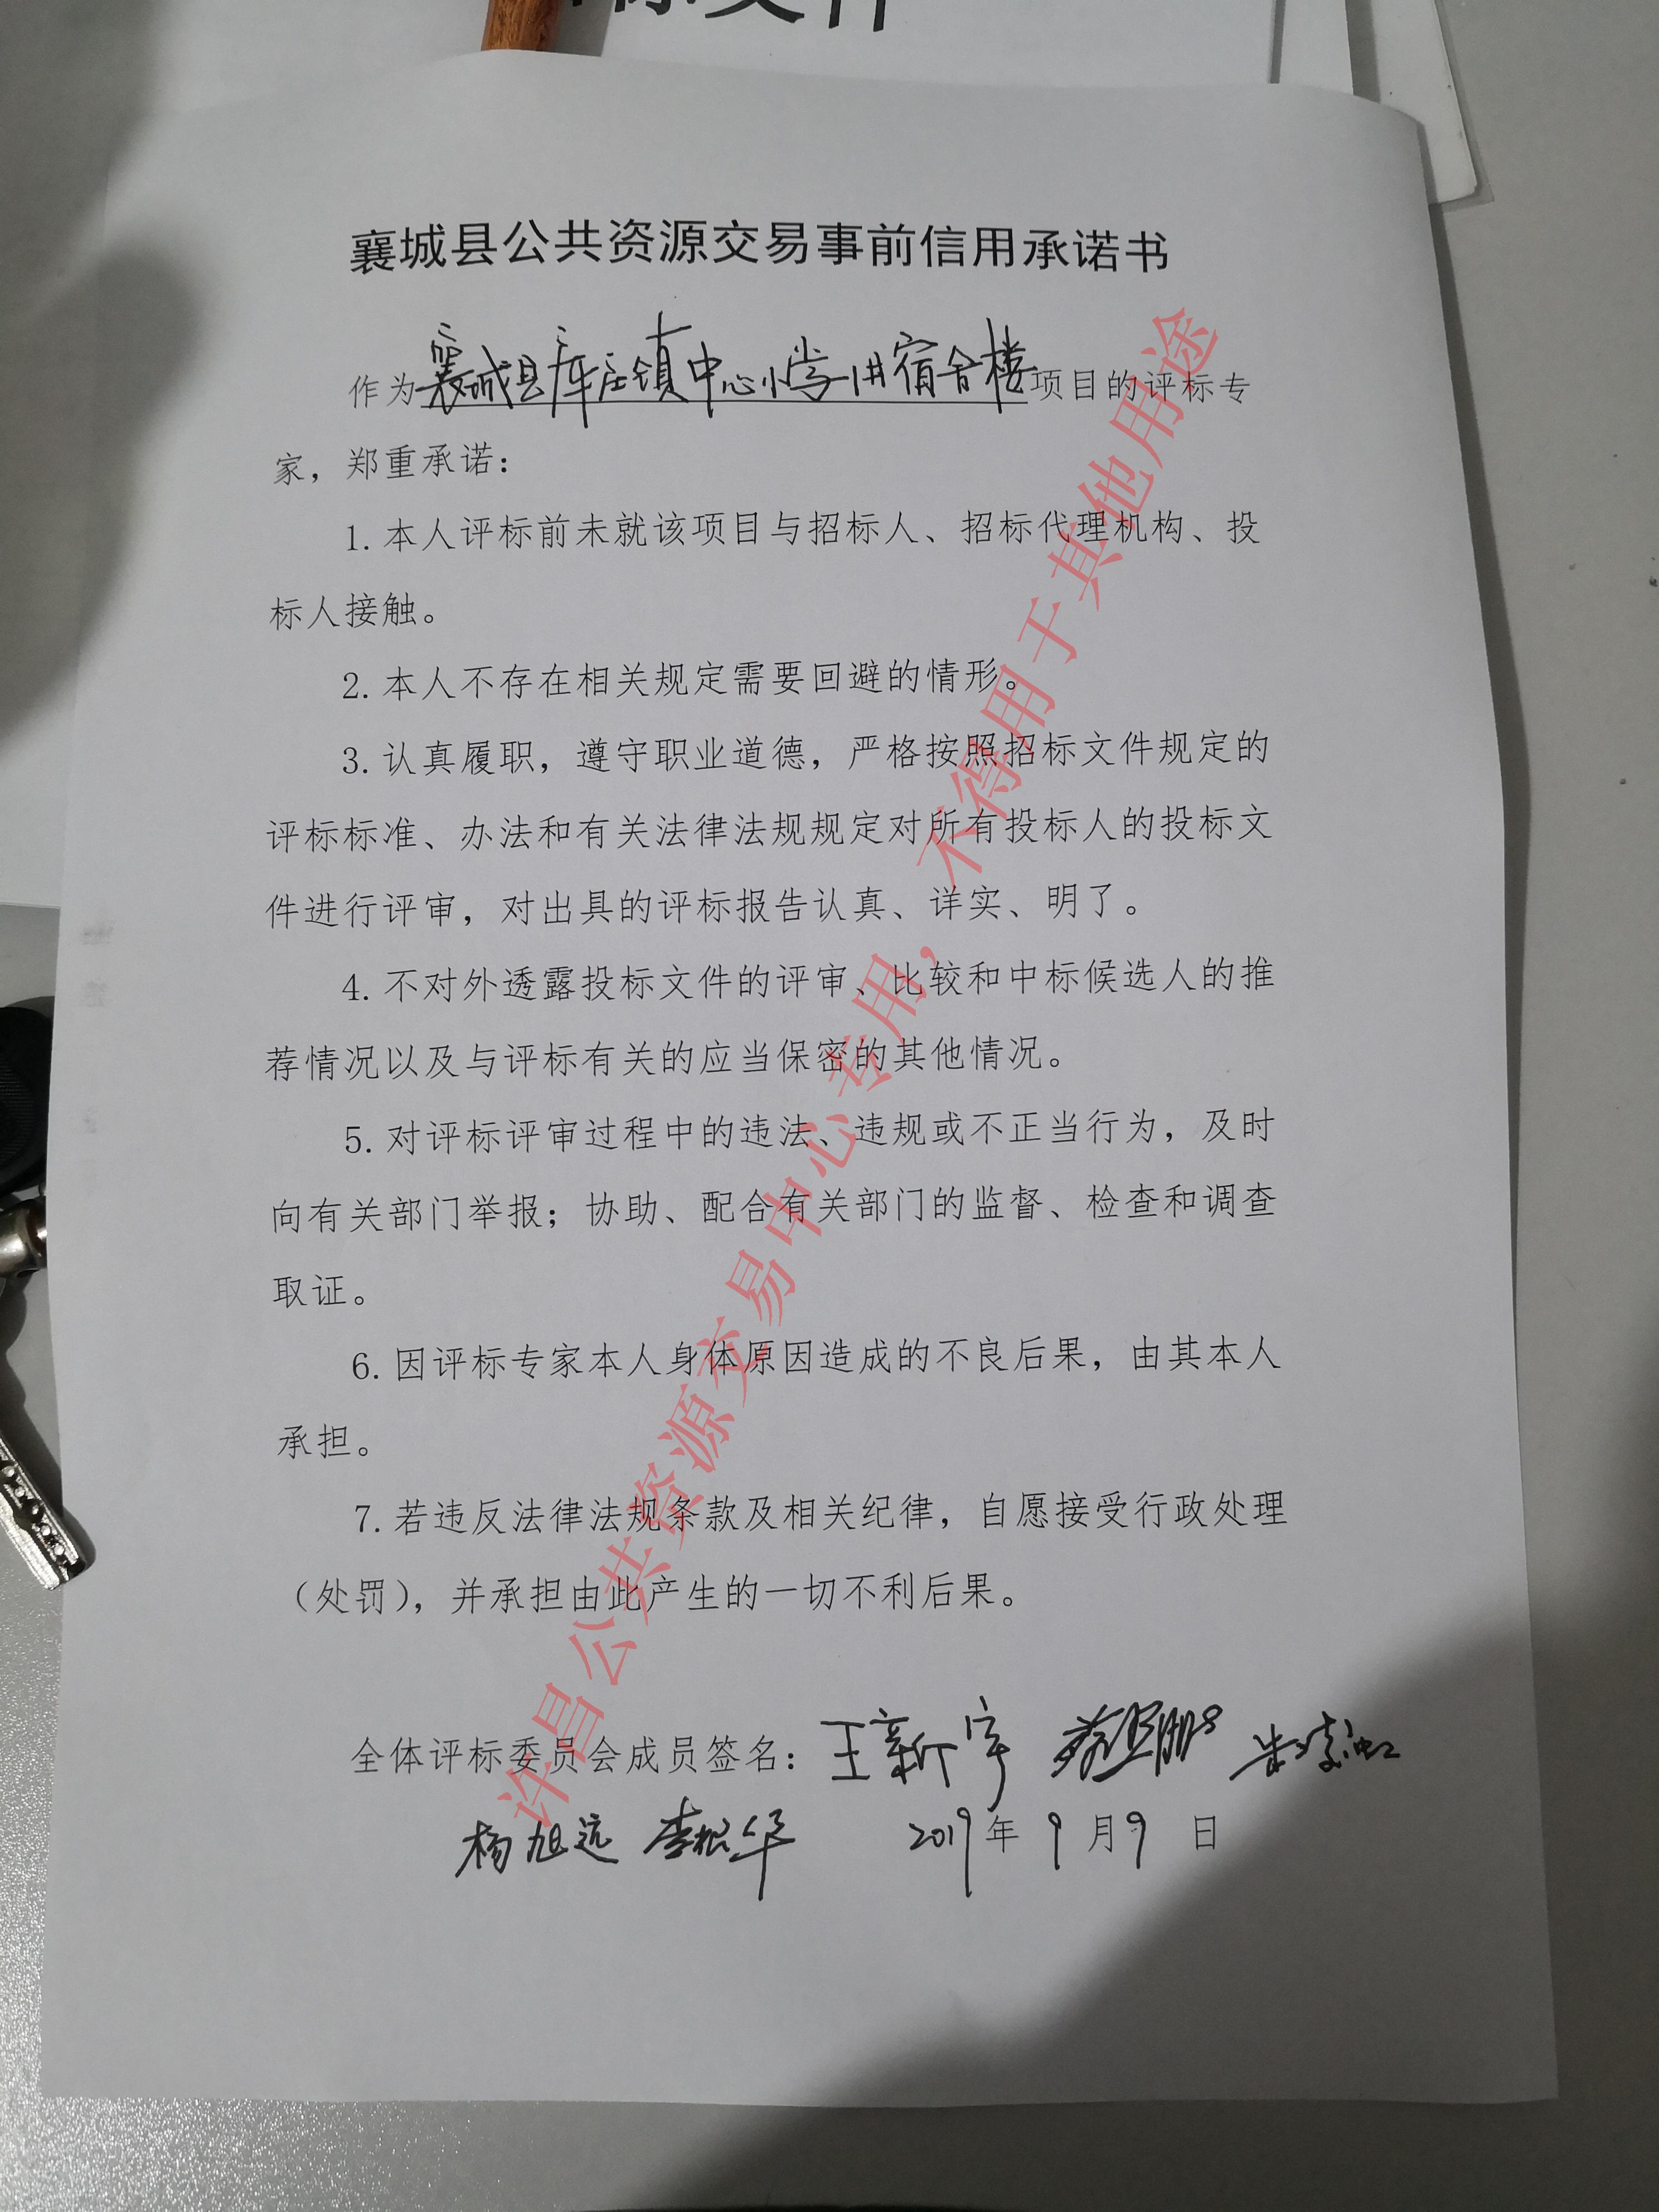 标文件
襄城县公共资源交易事前信用承诺书
作为襄城县库庄镇中心小学1#宿舍楼项目的评标专
家，郑重承诺：
1.本人评标前未就该项目与招标人、招标代理机构、投
标人接触。
2.本人不存在相关规定需要回避的情形。
3.认真履职，遵守职业道德，严格按照招标文件规定的
评标标准、办法和有关法律法规规定对所有投标人的投标文
件进行评审，对出具的评标报告认真、详实、明了。
4.不对外透露投标文件的评审、比较和中标候选人的推
荐情况以及与评标有关的应当保密的其他情况。
5.对评标评审过程中的违法、违规或不正当行为，及时
向有关部门举报；协助、配合有关部门的监督、检查和调查
取证。
6.因评标专家本人身体原因造成的不良后果，由其本人
承担。
7.若违反法律法规条款及相关纪律，自愿接受行政处理
（处罚），并承担由此产生的一切不利后果。
全体评标委员会成员签名：王新宇
杨旭远 李根华 2019年9月9日
许昌公共资源交易中心专用，不得用于其他用途